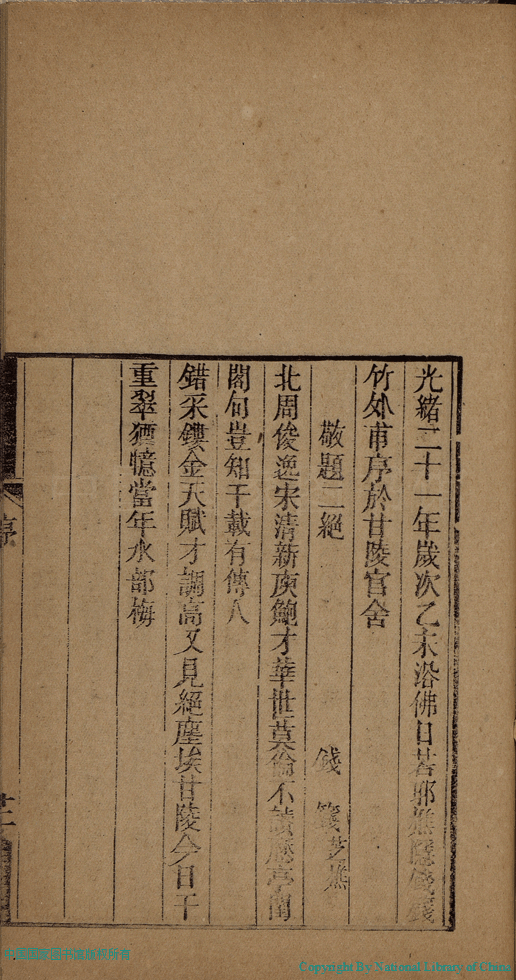 光緒二十一年歲次乙未浴佛日苕邪無隱錢錢
竹外甫序於甘陵官舍
敬題二絕
錢 䇳 芝無
北周俊逸宋清新庾鮑才華世莫倫不讀歷亭閨
閣句豈知千載有傳人
錯采鏤金天賦才調高又見絕塵埃甘陵今日千
重翠猶憶當年水部梅
序
Copyright By National Library of China